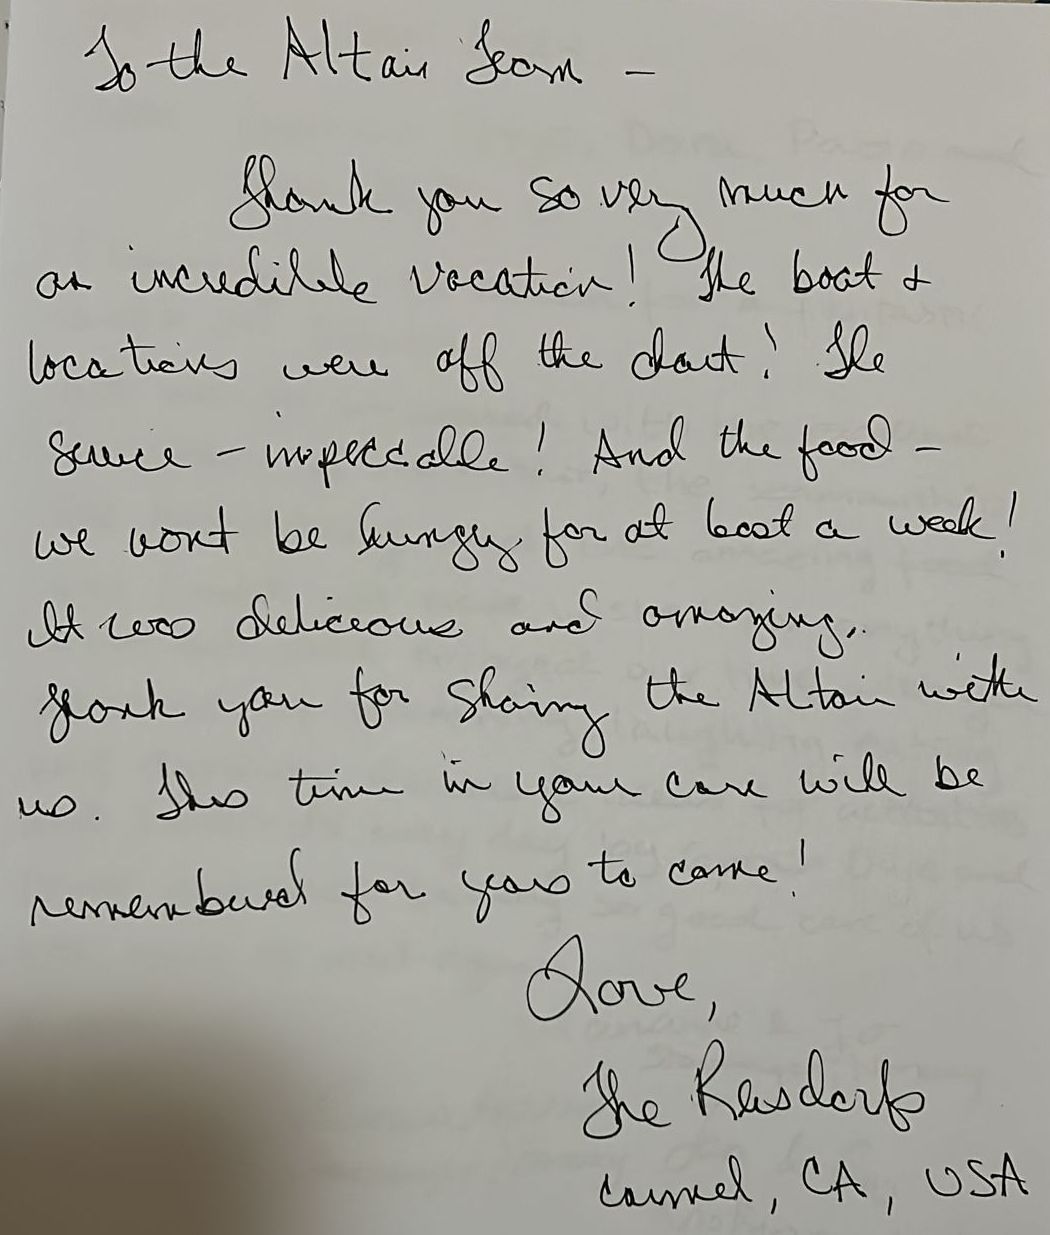 To the Altair Team -
Thank you so very much for
an incredible vacation! The boat &
locations were off the chart! The
service - impeccable! And the food -
we wont be hungry for at least a week!
It was delicious and amazing.
Thank you for sharing the Altair with
us. This time in your care will be
remembered for years to come!
Love,
The
Carmel, CA, USA